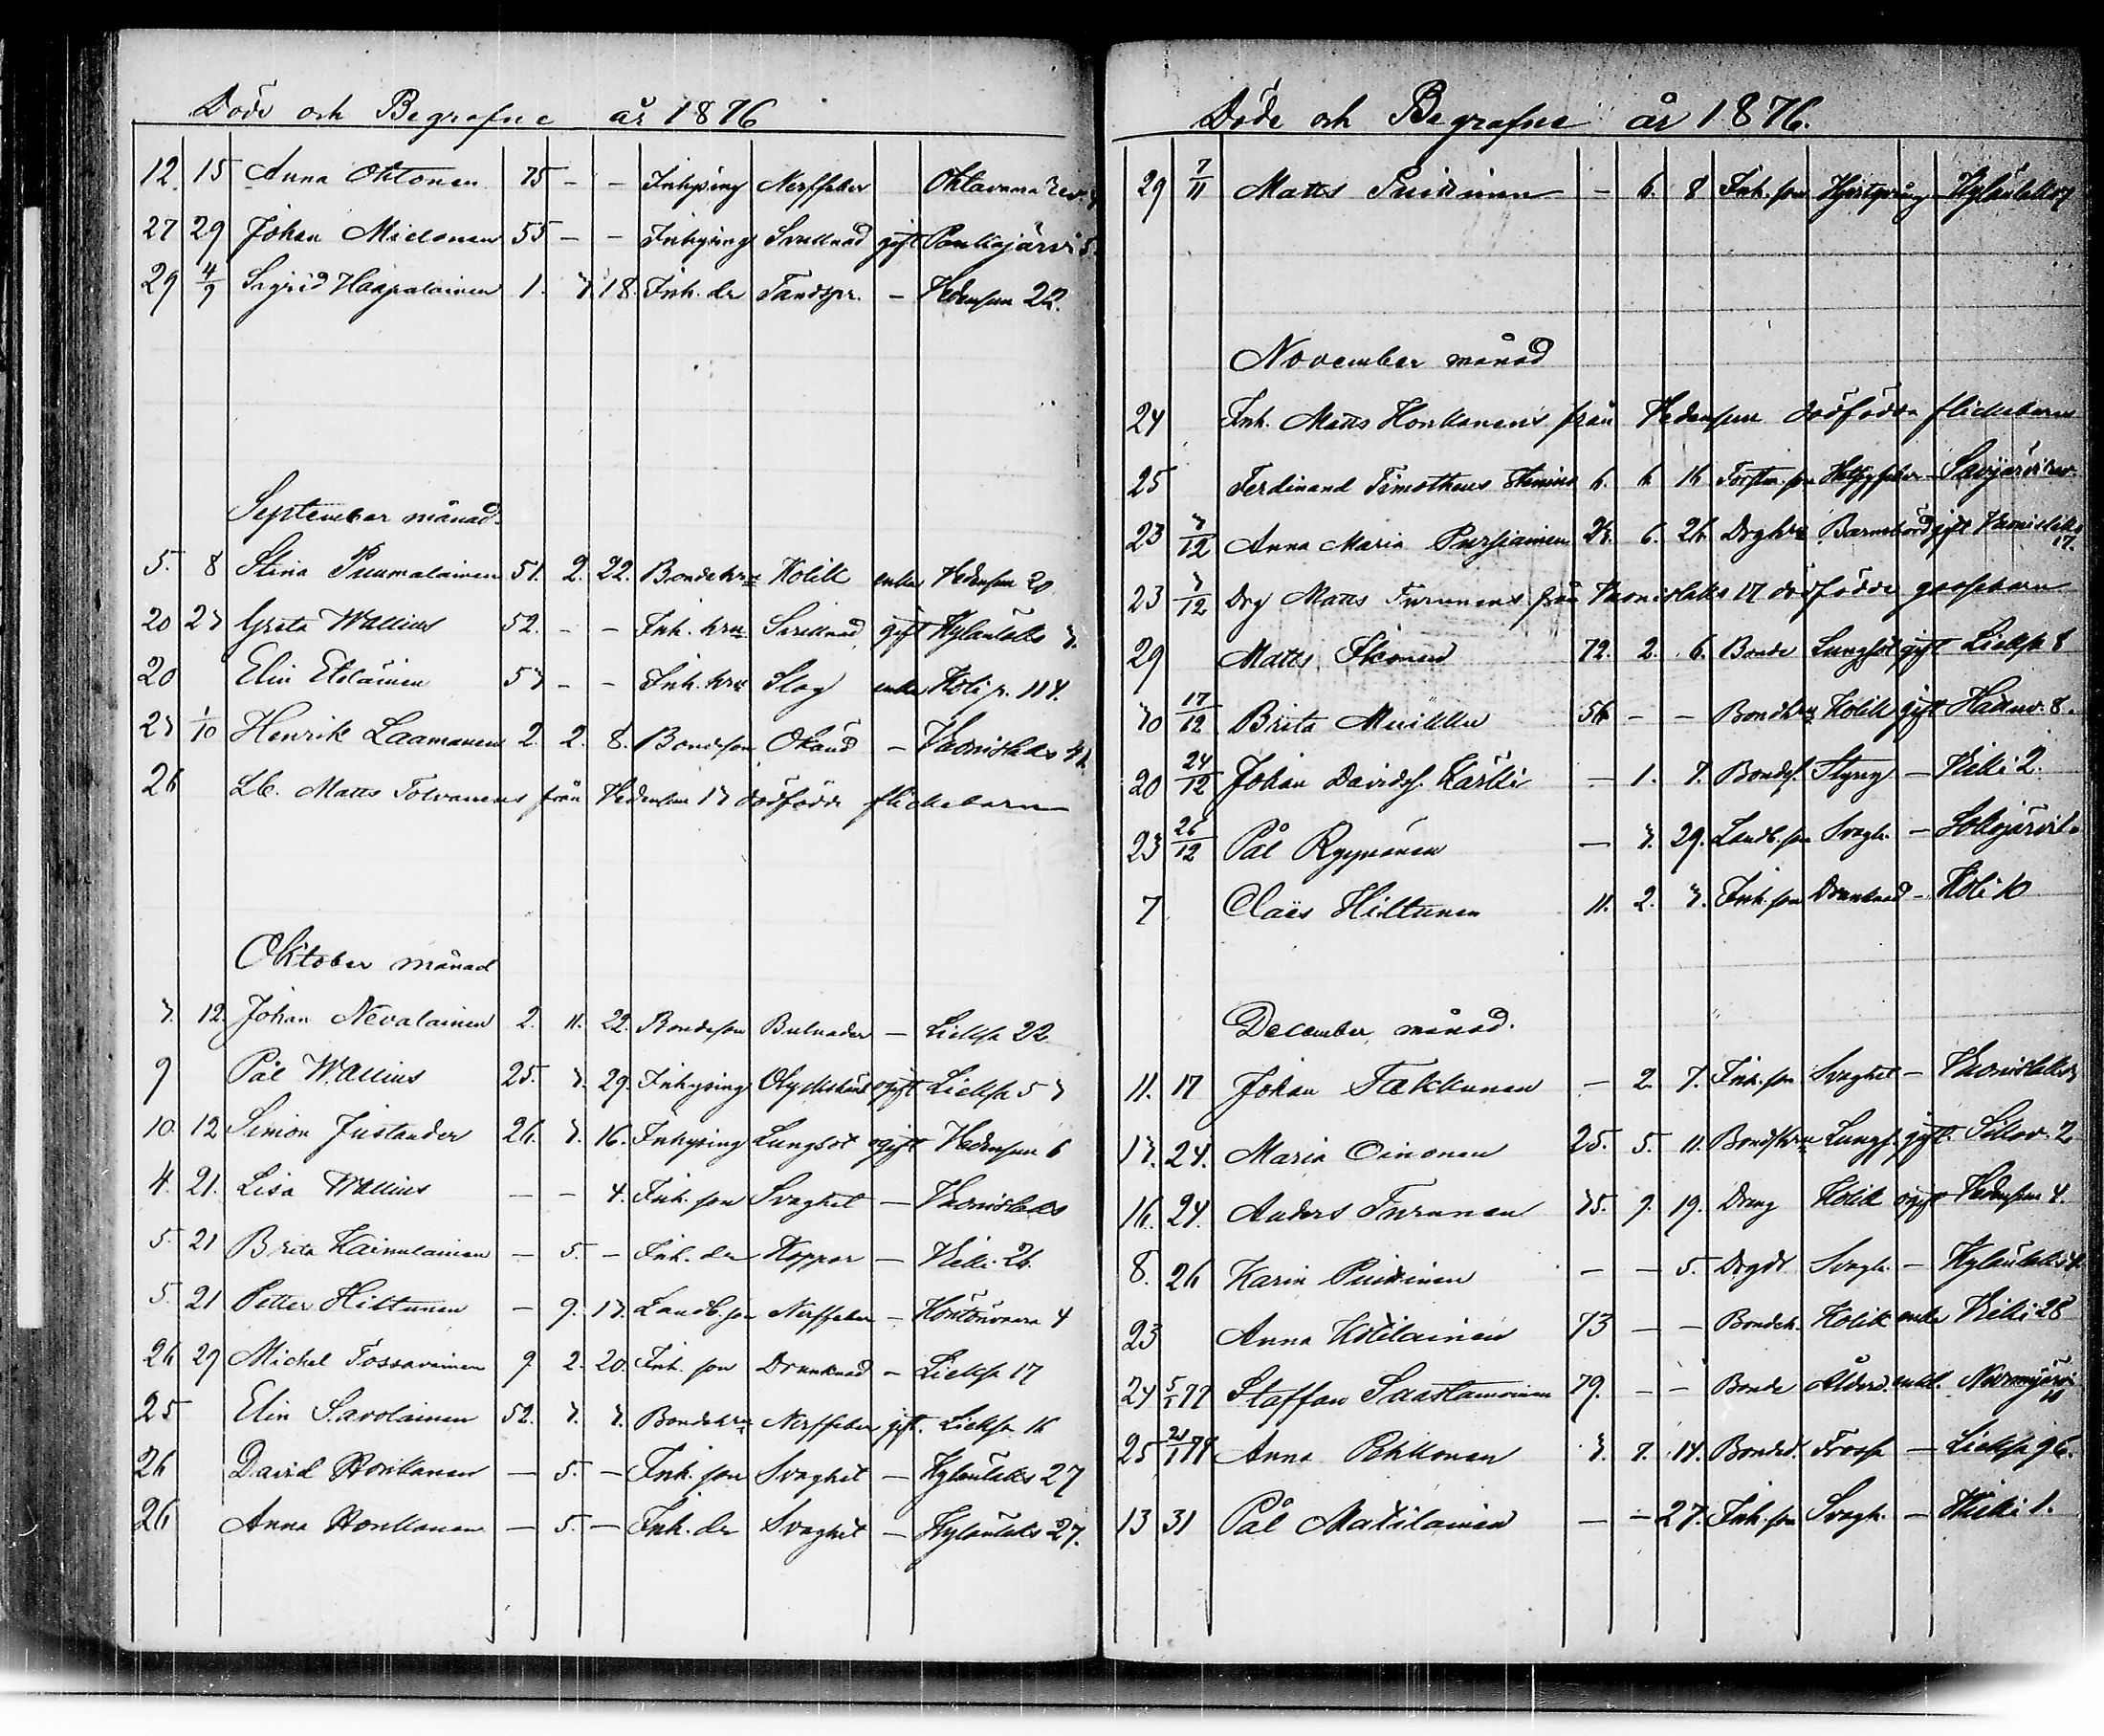 Döde och Begrafne år 1876
12. 15 Anna Oktonen 75 - - Inhysing Nerffeber Oktavaara
27 29 Johan Mielonen 55 - - Inhysing Svullnad gift Pankajärvi 5.
29 4/9 Sigrid Haapalainen 1. 3. 18. Inh. dr Tandspr. - Hedensun 22.
September månad.
5. 8 Stina Puumalainen 51. 2. 22. Bondehru Kolik enka Hedensun 20
20 23 Greta Wallius 52. - - Inh. hru Svullnad gift Kylänlaks 3.
20 Elin Eteläinen 53 - - Inh. hru Slag enka Koli p. 114.
23 1/10 Henrik Laamanen 2. 2. 8. Bondeson Okänd - Vuonislaks
26 Lb. Matts Tolvanens från Hedensun 13 dödfödde flickebarn
Oktober månad
3. 12. Johan Nevalainen 2. 11. 22. Bondeson Bulnader - Lieksa 22
9 Pål Wallius 25. 3. 29. Inhysing Olyckshänd. ogift Lieksa 53
10. 12 Simon Justander 26. 3. 16. Inhysing Lungsot ogift Hedensun 6
4. 21. Lisa Wallius - - 4. Inh. son Svaghet - Vuonislaks
5. 21 Brita Kainulainen - 5. - Inh. dr Koppor - Vieki 26.
5. 21 Petter Hiltunen - 9. 13. Landb. son Nerffeber - Höntönvaara 4
26 29 Michel Tossavainen 9 2. 20. Inh. son Drunknad - Lieksa 17
25 Elin Savolainen 52. 3. 3. Bondehru Nerffeber gift. Lieksa 16
26 David Honkanen - 5. - Inh. son Svaghet - Kylänlaks 27
26 Anna Honkanen - 5. - Inh. dr Svaghet - Kylänlaks 27.
Döde och Begrafne år 1876.
29 7/11 Matts Puidinen - 6. 8 Inh. son Kylänlaks
November månad
24 Inh. Matts Honkanens från Hedensun dödfödda flickebarn
25 Ferdinand Timotheus 6. 6 16 Savijärvi
23 3/12 Anna Maria Pursiainen 26. Drghru Barnsbörd gift Vuonislaks 17.
23 3/12 Drg Matts Turunens från Vuonislaks 17 dödfödde gossebarn
29 Matts 72. 2. 6. Bonde Lungsot gift Lieksa 8
30 17/12 Brita Muikku 56 - - Bondhru Kolik gift 8.
20 24/12 Johan Davidsf. Kärki - 1. 7. Bondes. - Vieki 2.
23 26/12 Pål Ryynänen - 3. 29. Landb. son Svagh. -
7 Claës Hiltunen 11. 2. 3. Inh. son Drunknad - Koli 10
December månad.
11. 17 Johan Takkunen - 2. 7. Inh. son Svaghet - Vuonislaks
13. 24. Maria Oinonen 25. 5. 11. Bondhru Lungs. gift. 2.
16. 24. Anders Turunen 35. 9. 19. Dreng Kolik ogift Hedensun 4.
8. 26 Karin Puidinen - - 5. Drgdr Svagh. - Kylänlaks
23 Anna Kötiläinen 73 - - Bondeh. Kolik enka Vieki 28
24 5/1 77 Staffan Saastamoinen 79. - - Bonde Ålderd. enkl. Nurmijärvi 10
25 21/1 77 Anna Pehkonen 3. 7. 14. Bonded. Trosk - Lieksa 96.
13 31 Pål Matilainen - - 27. Inh. son Svagh. - Vieki 1.